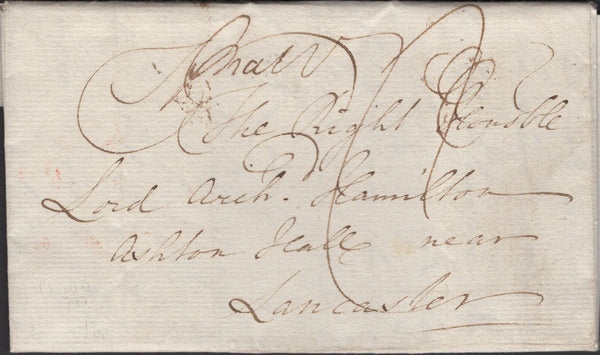 The Right Honoble
Lord Arch. Hamilton
Ashton Hall near
Lancaster